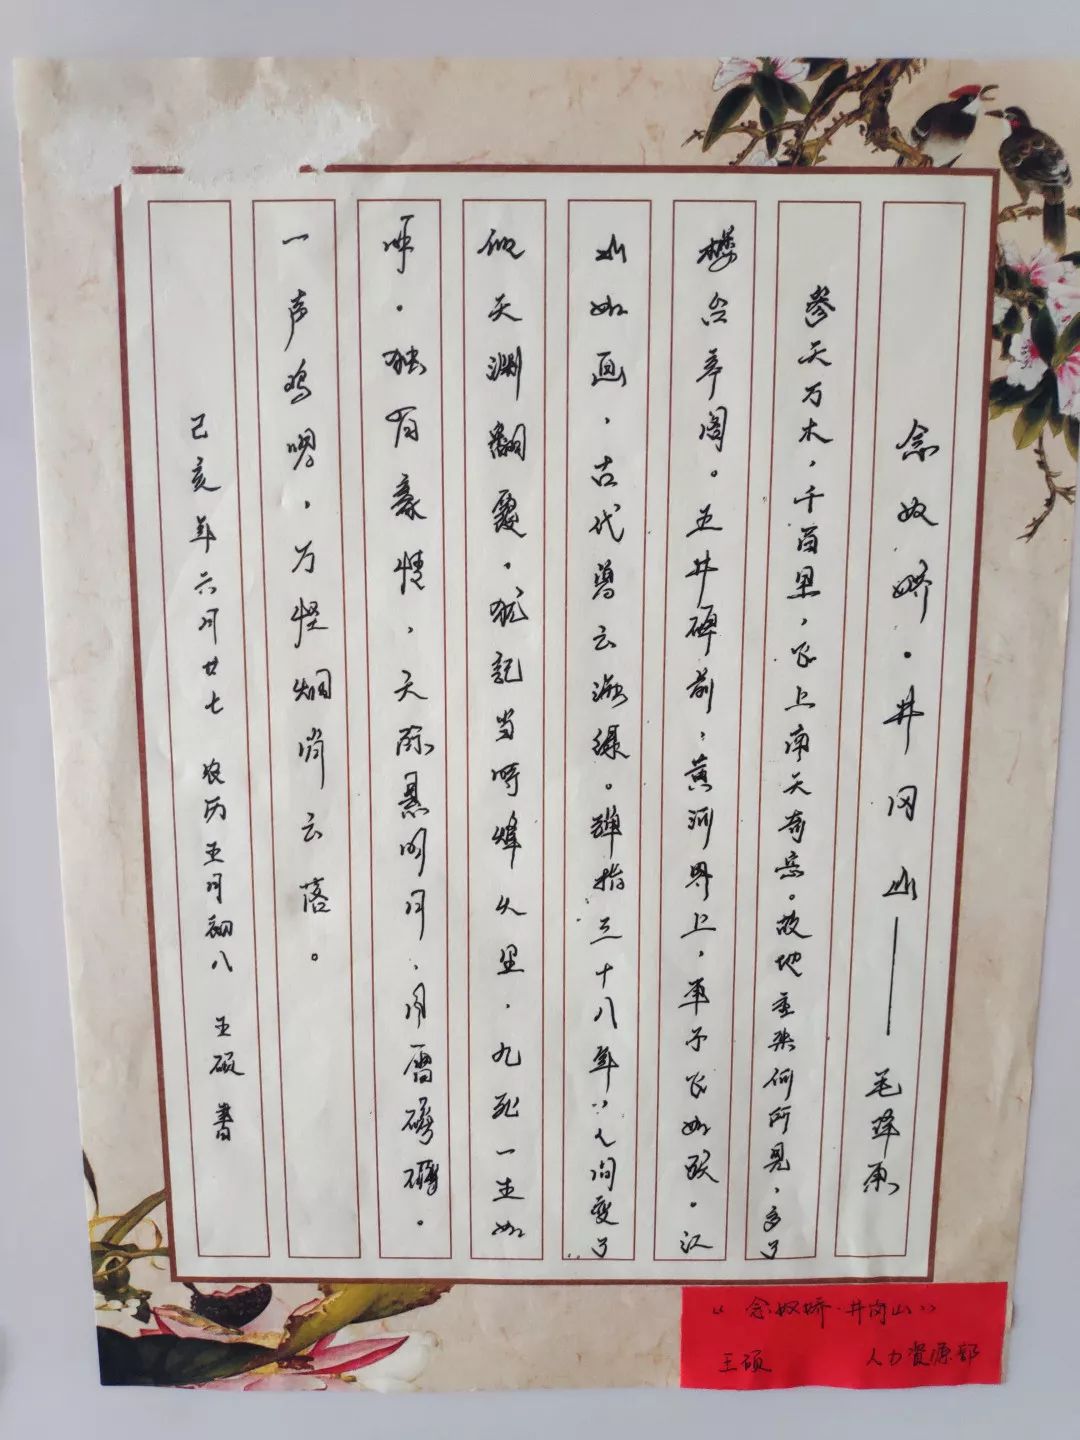 念奴娇·井冈山——毛泽东
参天万木，千百里，飞上南天奇岳。故地重来何所见，多了
楼台亭阁。五井碑前，黄洋界上，车子飞如跃。江
山如画，古代曾云海绿。弹指三十八年，人间变了
似天渊翻覆。犹记当时烽火里，九死一生如
昨。独有豪情，天际悬明月，风雷磅礴。
一声鸡唱，万怪烟消云落。
己亥年六月廿七 农历五月初八 王硕 书
“念奴娇·井岗山”
王硕 人力资源部